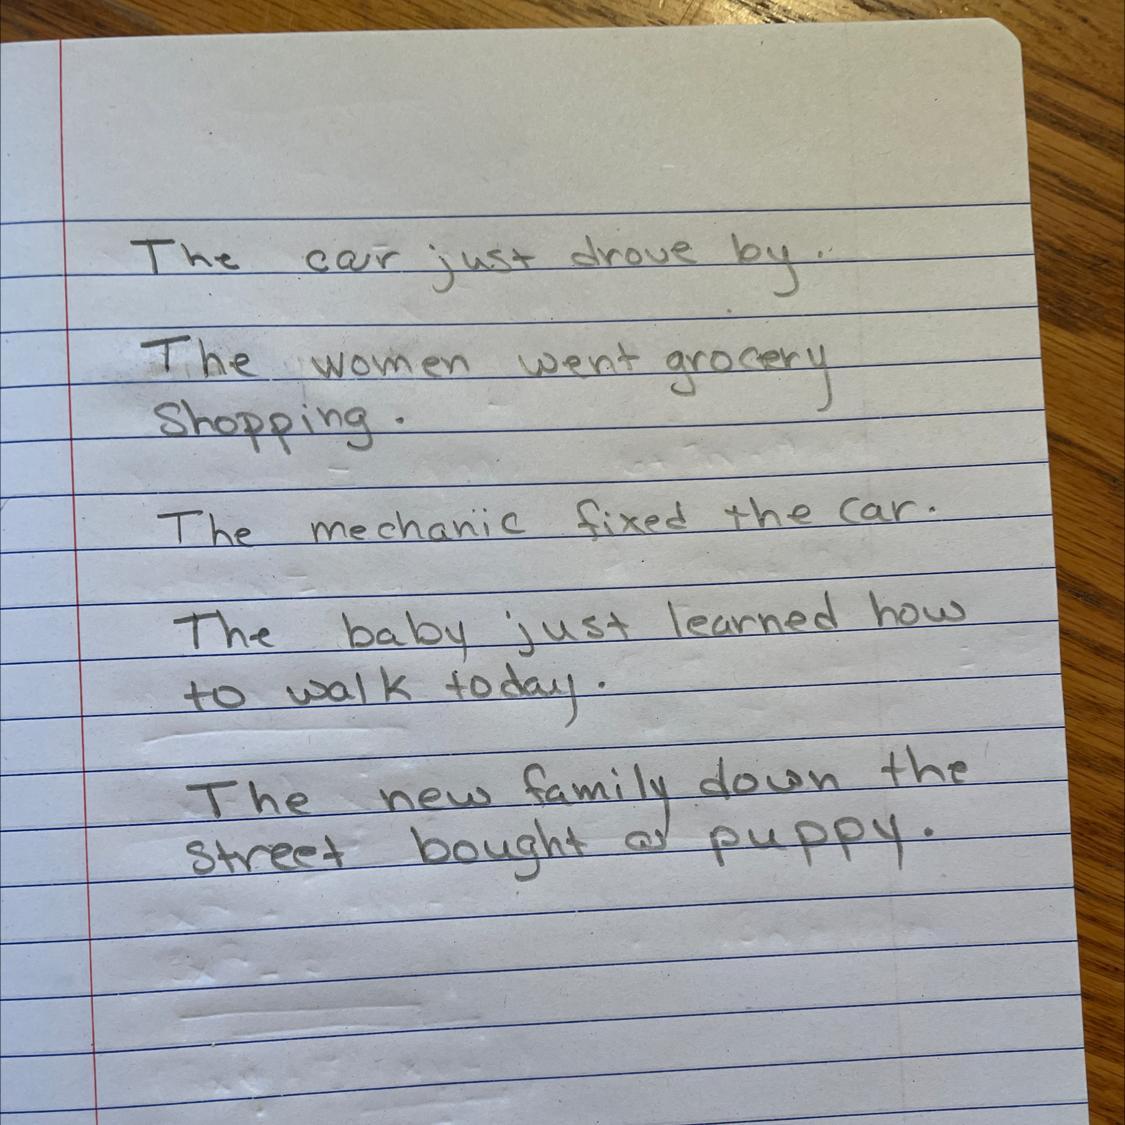 The car just drove by.
The women went grocery
Shopping.
The mechanic fixed the car.
The baby just learned how
to walk today.
The new family down the
street bought a puppy.